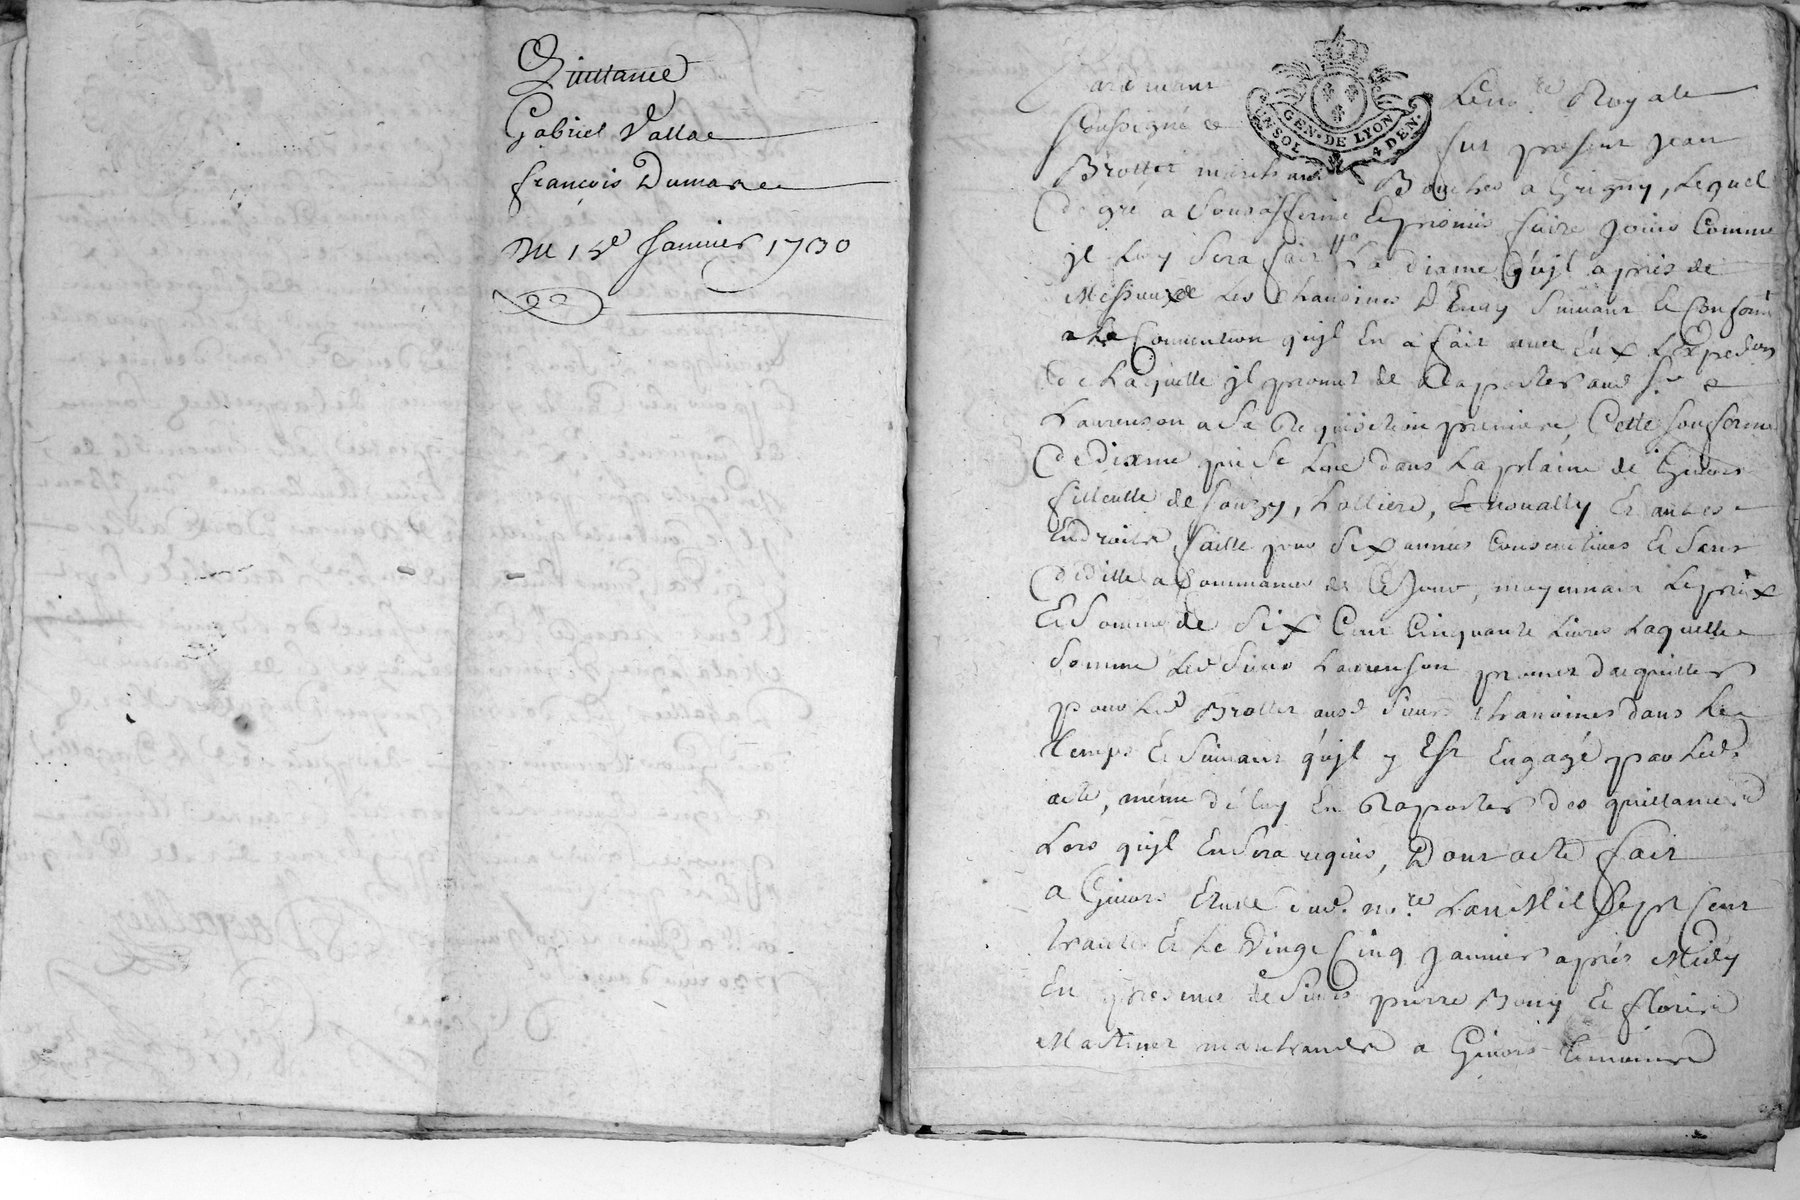 Quittance
Gabriel Valla
françois Dumar
Du 15e Janvier 1730
GEN. DE LYON
UN SOL 4 DEN.
Pardevant Le no.re Royale
soussigné fut present Jean
Brottet marchand Boucher a Grigny, Lequel
de gré a sousafferme Et promis faire jouir comme
jl Luy sera fait La dixme qu'jl a pris de
Messieurs Les chanoines D'Enay suivant Et conform
a La Convention qu'jl En a fait avec Eux L'Expedon
de Laquelle jl promet de Raporter aud Sr
Laurenson a Sa Requisition premiere, Cette sousferme
de dixme qui se Leve dans La plaine de Givors
fillculte de souzy, Lolliere, Et autres
Endroits, faitte pour Six années consecutives Et sans
deditte a Commancer de Ce Jour, moyennant Le prix
Et Somme de Six Cent Cinquante Livres Laquelle
Somme Led Sieur Laurenson promet d'acquitter
pour Led Brottet ausd Sieurs chanoines dans Le
temps Et Suivant qu'jl y Est Engagé par Led.
acte, méme dé luy En Raporter des quittances
Lors qu'jl En Sera requis, Dont acte fait
a Givors Etude dud. no.re L'an Mil Sept Cent
trante Et Le Vingt Cinq Janvier aprés Midy
En presence de Sieurs pierre Bony Et fleury
Martinet marchands a Givors temoins